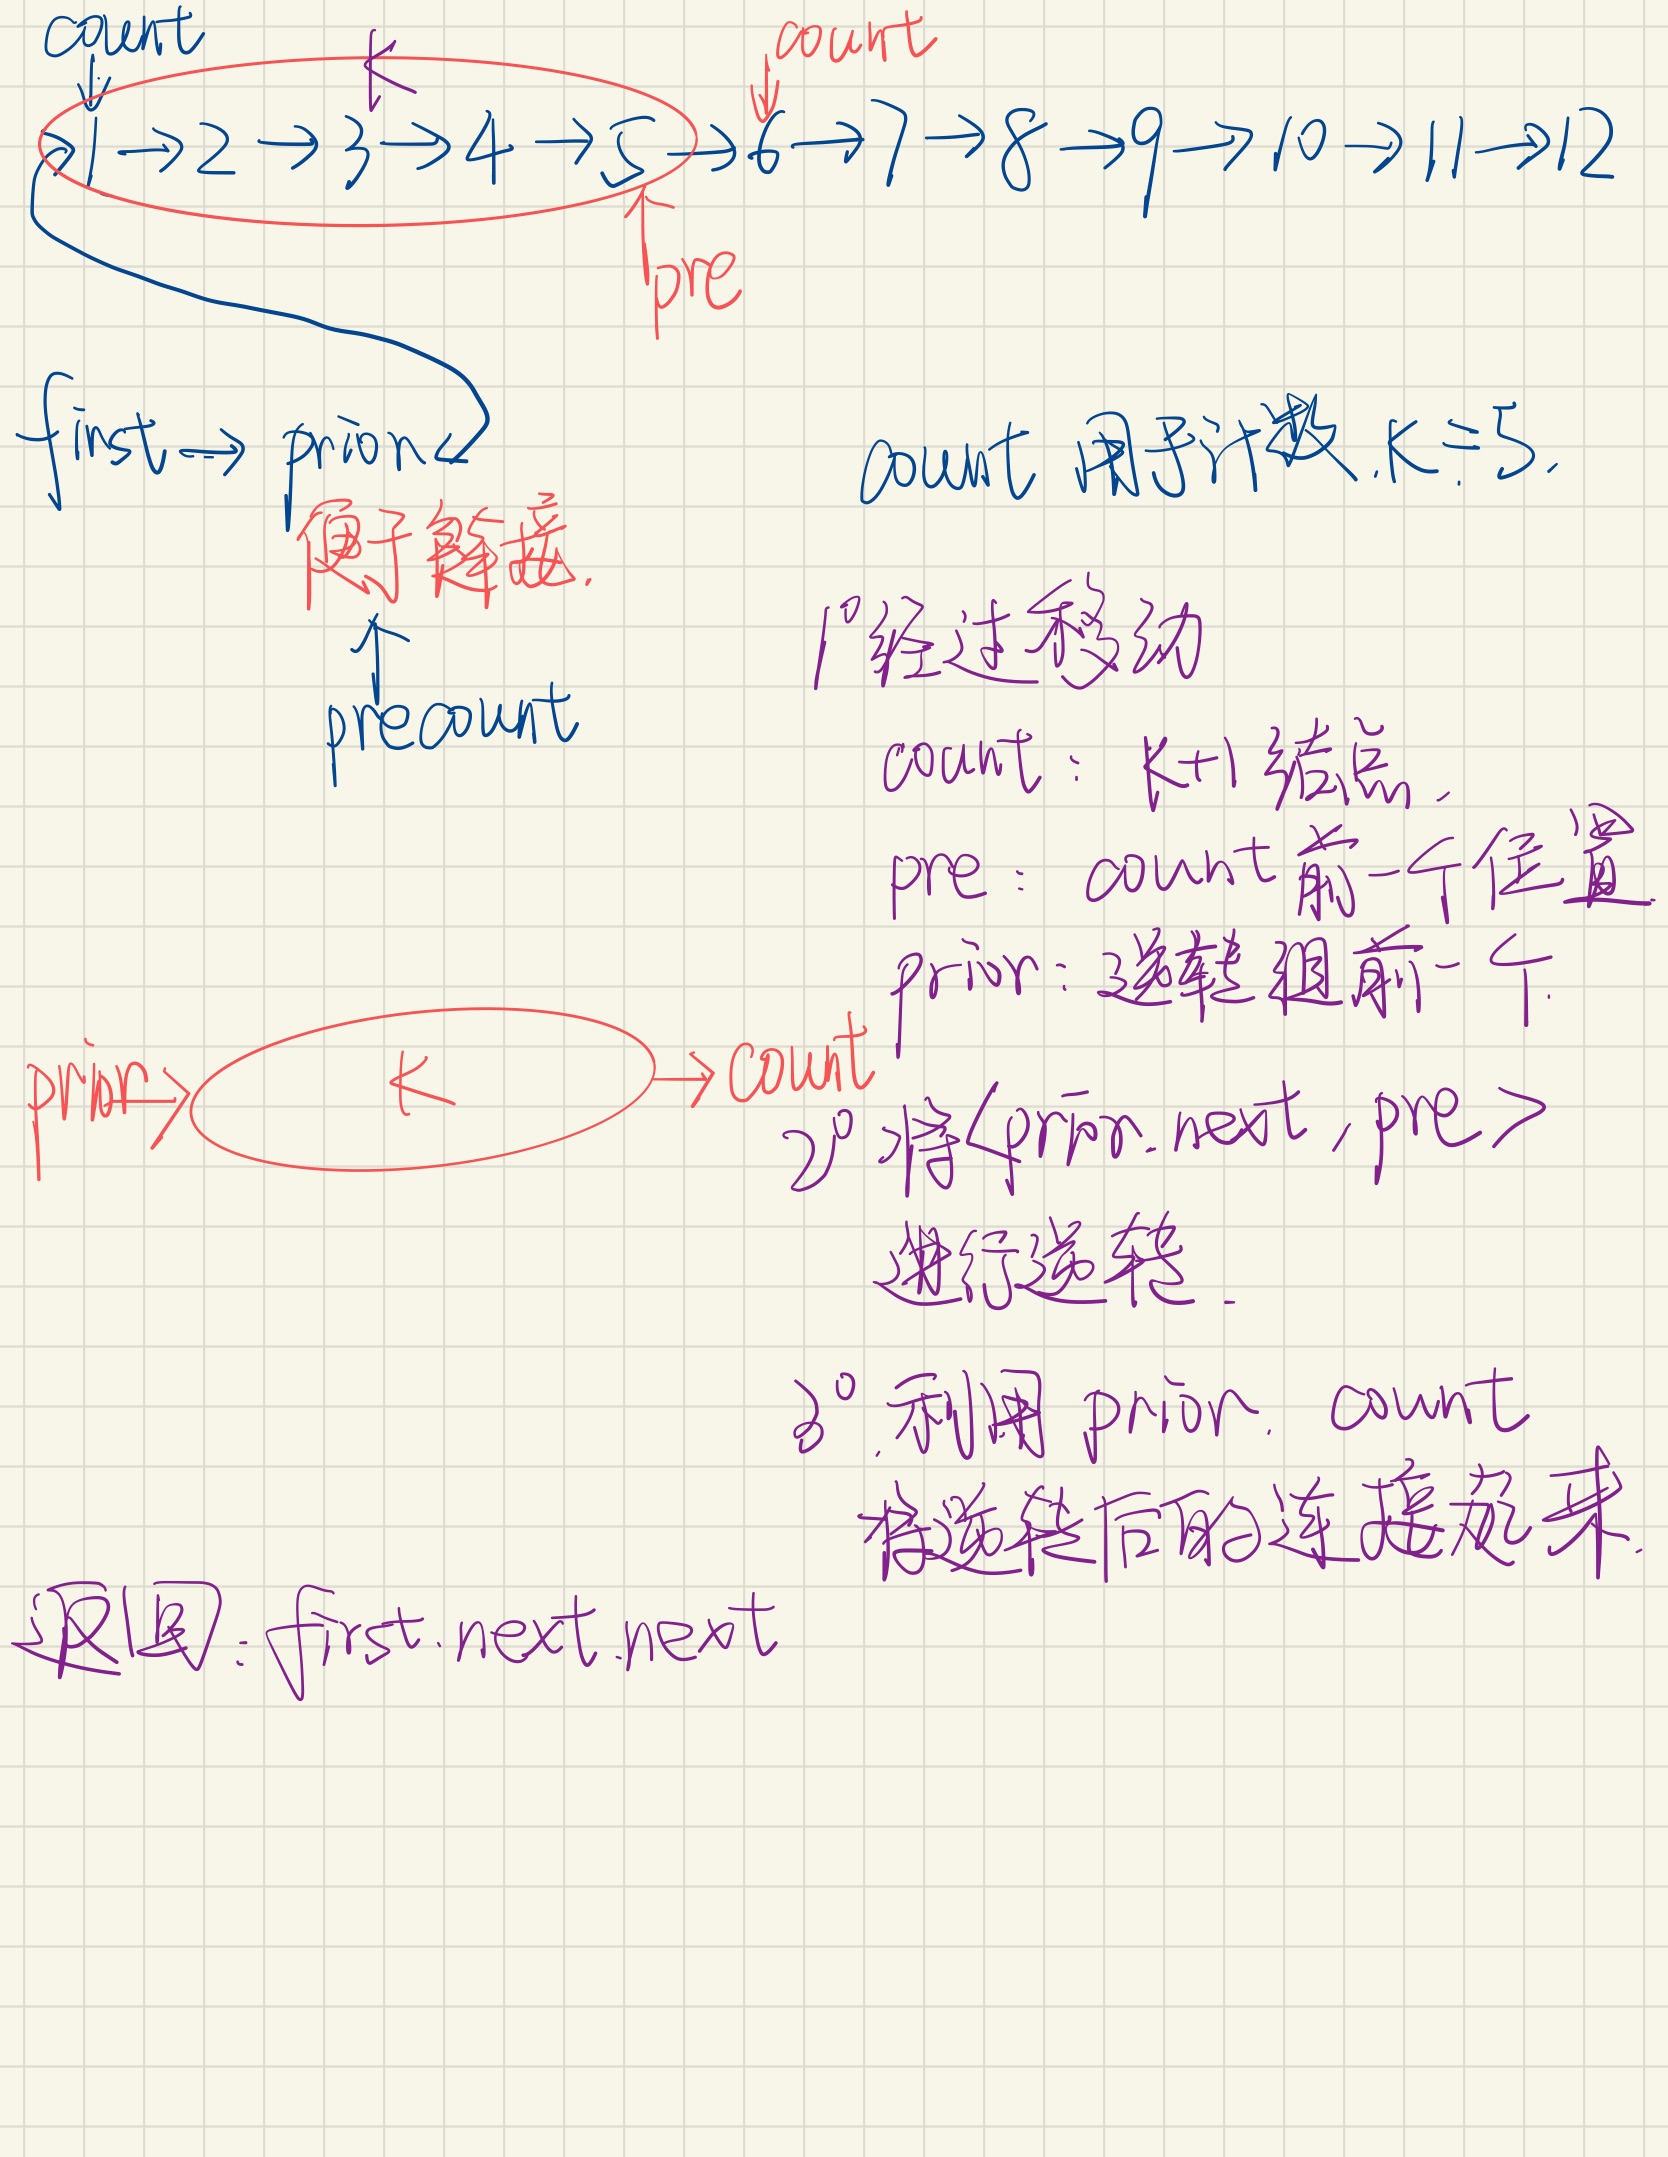 count
K
count
1→2→3→4→5→6→7→8→9→10→11→12
pre
first→prior
便于解接.
precount
count 用于计数.K=5.
1°经过移动
count: K+1 结点.
pre: count前一个位置
prior:逆转组前一个.
prior→ K →count
2°将<prior.next,pre>
进行逆转.
3°.利用 prior. count
将逆转后的连接起来.
返回:first.next.next